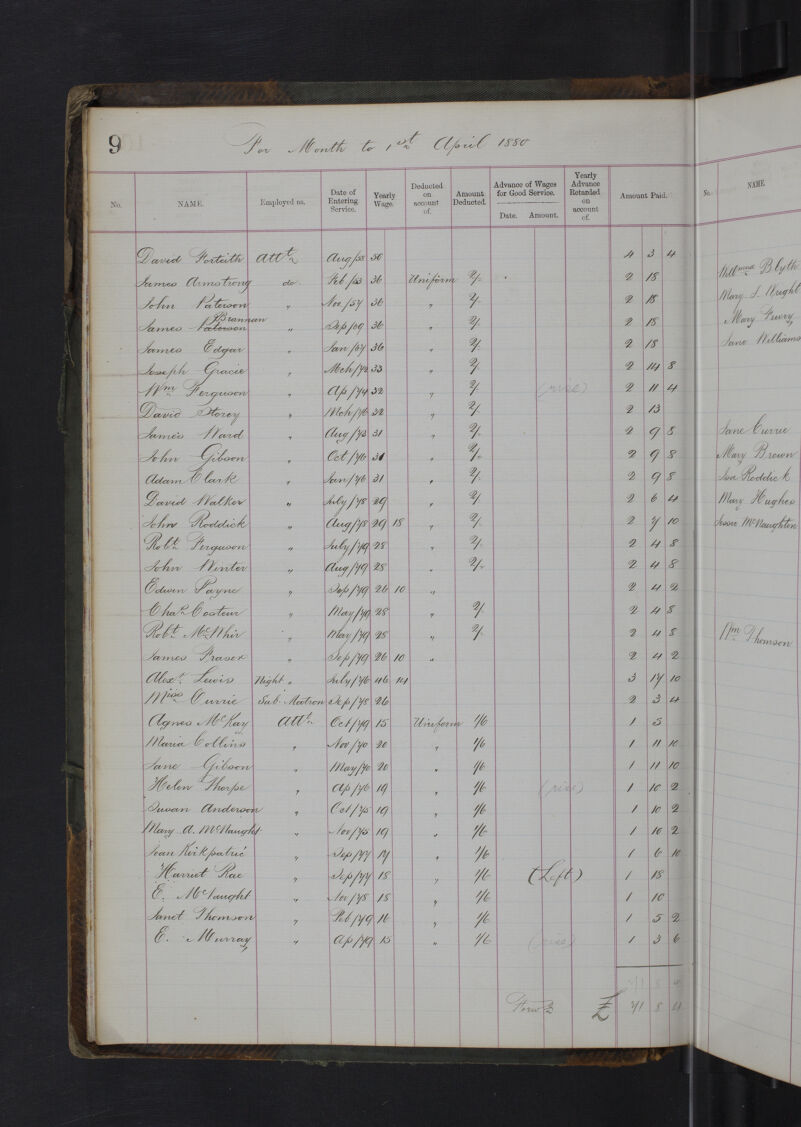 9 For Month to 1st April 1880
No. NAME. Employed as. Date of Entering Service. Yearly Wage. Deducted on account of. Amount Deducted. Advance of Wages for Good Service. Date. Amount. Yearly Advance Retarded on account of. Amount Paid.
No. NAME
David Forteith Attt Aug/58 50 4 3 4
James Armstrong do Feb/53 36 Uniform 2/- 2 18
John Paterson " Nov/57 36 " 2/- 2 18
Brannan
James Paterson " Sep/69 36 " 2/- 2 18
James Edgar " Jan/67 36 " 2/- 2 18
Joseph Gracie " Mch/72 33 " 2/- 2 14 8
Wm Ferguson " Ap/74 32 " 2/- (rise) 2 11 4
David Storey " Mch/76 32 " 2/- 2 13
James Ward " Aug/73 31 " 2/- 2 9 8
John Gibson " Oct/76 31 " 2/- 2 9 8
Adam Clark " Jan/76 31 " 2/- 2 9 8
David Walker " July/78 29 " 2/- 2 6 4
John Roddick " Aug/78 29 18 " 2/- 2 7 10
Robt Ferguson " July/79 28 " 2/- 2 4 8
John Winter " Aug/79 28 " 2/- 2 4 8
Edwin Payne " Sep/79 26 10 " 2 4 2
Chas Costeur " May/79 28 " 2/- 2 4 8
Robt McWhir " May/79 28 " 2/- 2 4 8
James Fraser " Sep/79 26 10 " 2 4 2
Alext Lewis Night " July/76 46 14 3 17 10
Miss Currie Sub-Matron Sep/78 26 2 3 4
Agnes McKay Attt Oct/79 15 Uniform 1/6 1 5
Maria Collins " Nov/70 20 " 1/6 1 11 10
Jane Gibson " May/70 20 " 1/6 1 11 10
Helen Thorpe " Ap/76 19 " 1/6 (rise) 1 10 2
Susan Anderson " Oct/75 19 " 1/6 1 10 2
Mary A. McNaught " Nov/75 19 " 1/6 1 10 2
Joan Kirkpatric " Sep/77 17 " 1/6 1 6 10
Harriet Rae " Sep/77 18 " 1/6 (Left) 1 18
E. McNaught " Nov/78 18 " 1/6 1 10
Janet Thomson " Feb/79 16 " 1/6 1 5 2
E. Murray " Ap/79 15 " 1/6 (rise) 1 3 6
71 8 4
Forwd £ 71 8 4
Willmina Blyth
Mary S. Wright
Mary Furry
Jane Williams
Jane Currie
Mary Brown
Isa Roddick
Mary Hughes
Jessie McNaughten
Wm Thomson